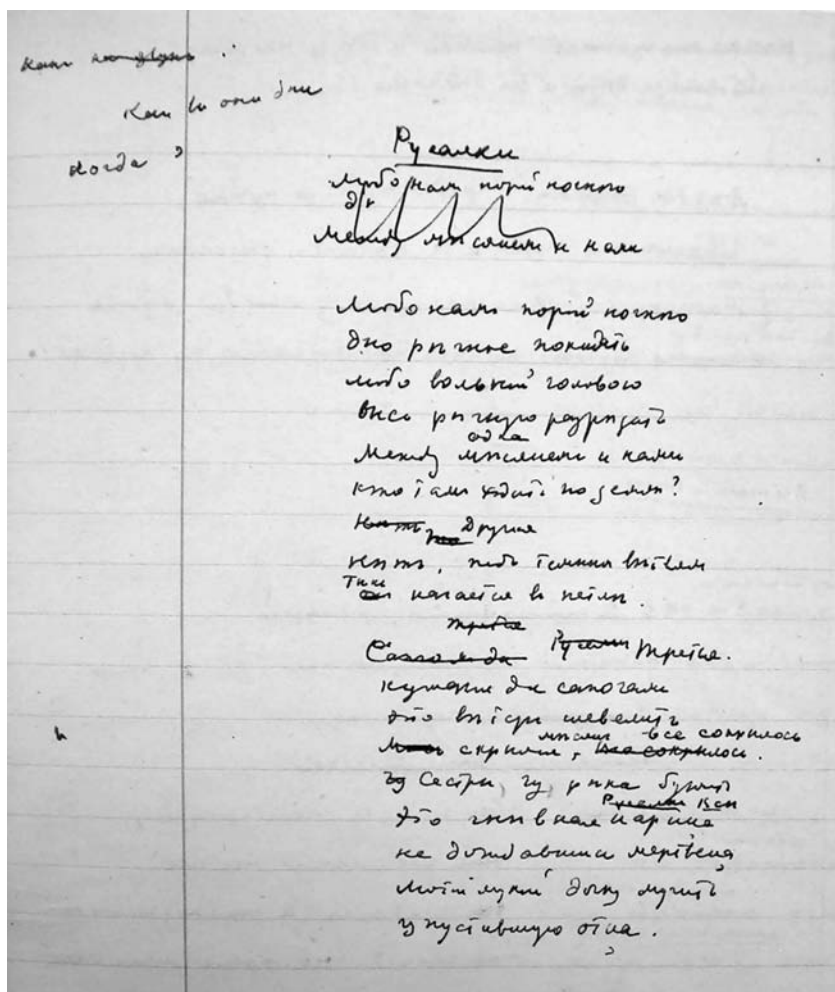 Какъ
Какъ во они дни
Когда ?
Русалки
Любо намъ порой ночною
дн
Между мѣсяцемъ и нами
Любо намъ порой ночною
дно рѣчное покидать
любо вольной головою
высь рѣчную разрѣзать
одна
Между мѣсяцемъ и нами
кто тамъ ходитъ по земли?
Нѣтъ это Другая
нѣтъ, подъ темными вѣтвями
Тѣнь
качается въ петлѣ.
третья
да Русалки Третья.
да сапогами
это вѣтеръ шевелитъ
мѣсяцъ все сокрылось
скрылся, все сокрылось.
чу Сестры, чу, рѣка бурлитъ
Русалки Всѣ
Это гнѣвная царица
не дождавшись мертвеца
лютой мукой дочку мучитъ
упустившую отца.